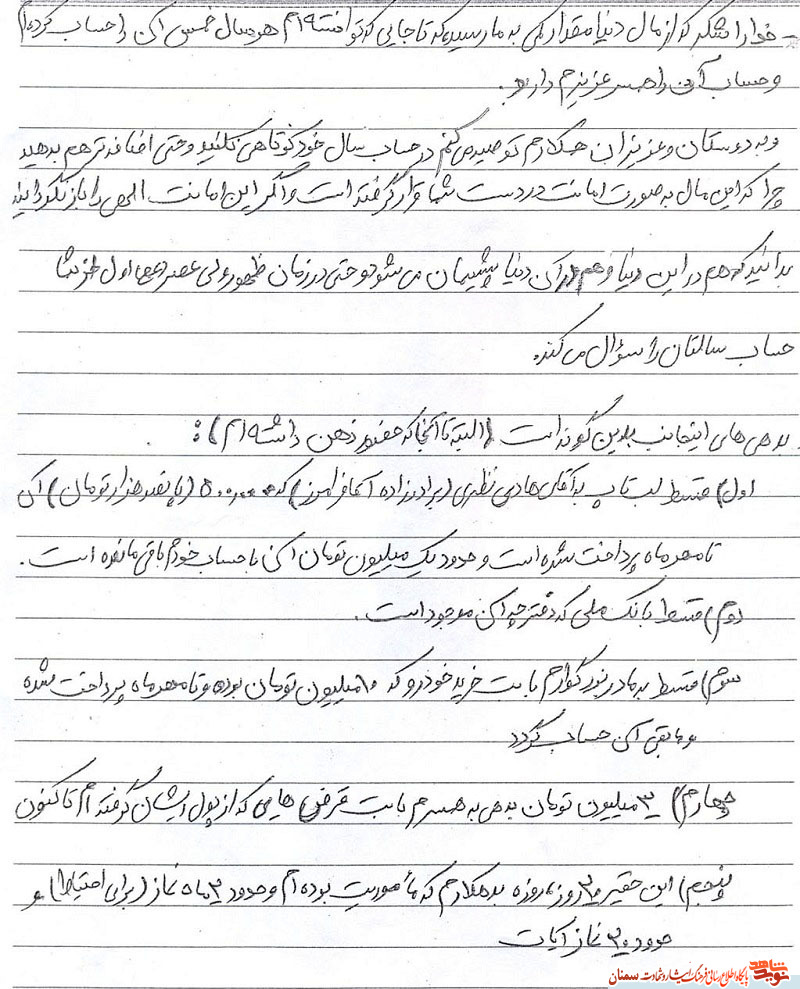 - خدا را شکر که از مال دنیا مقدار کمی به ما رسیده که تا جایی که توانسته ام هر سال خمس آن را حساب کرده ام
و حساب آن را همسر عزیزم دارد.
و به دوستان و عزیزان همکارم توصیه می کنم در حساب سال خود کوتاهی نکنید و حتی اضافه تر هم بدهید
چرا که این مال به صورت امانت در دست شما قرار گرفته است و اگر این امانت الهی را بازنگردانید
بدانید که هم در این دنیا و هم در آن دنیا پشیمان می شوید و حتی در زمان ظهور ولی عصر (عج) اول از شما
حساب سالتان را سؤال می کند.
بدهی های اینجانب بدین گونه است (البته تا آنجا که حضور ذهن داشته ام):
اول) قسط لب تاپ به آقای هادی نظری (برادرزاده آقا فرامرز) که ۵۰۰,۰۰۰ (پانصد هزار تومان) آن
تا مهر ماه پرداخت شده است و حدود یک میلیون تومان آن با حساب خودم باقی مانده است.
دوم) قسط بانک ملی که دفترچه آن موجود است.
سوم) قسط به مادر بزرگوارم بابت خرید خودرو که ۱۰ میلیون تومان بوده و تا مهر ماه پرداخت شده
و مابقی آن حساب گردد
چهارم) ۳ میلیون تومان بدهی به همسرم بابت قرض هایی که از پول ایشان گرفته ام تا کنون
پنجم) این حقیر ۳۰ روز، روزه بدهکارم که مأموریت بوده ام و حدود ۳ ماه نماز (برای احتیاط) و
حدود ۳۰ نماز آیات
نوید شاهد
پایگاه اطلاع رسانی فرهنگ ایثار و شهادت سمنان